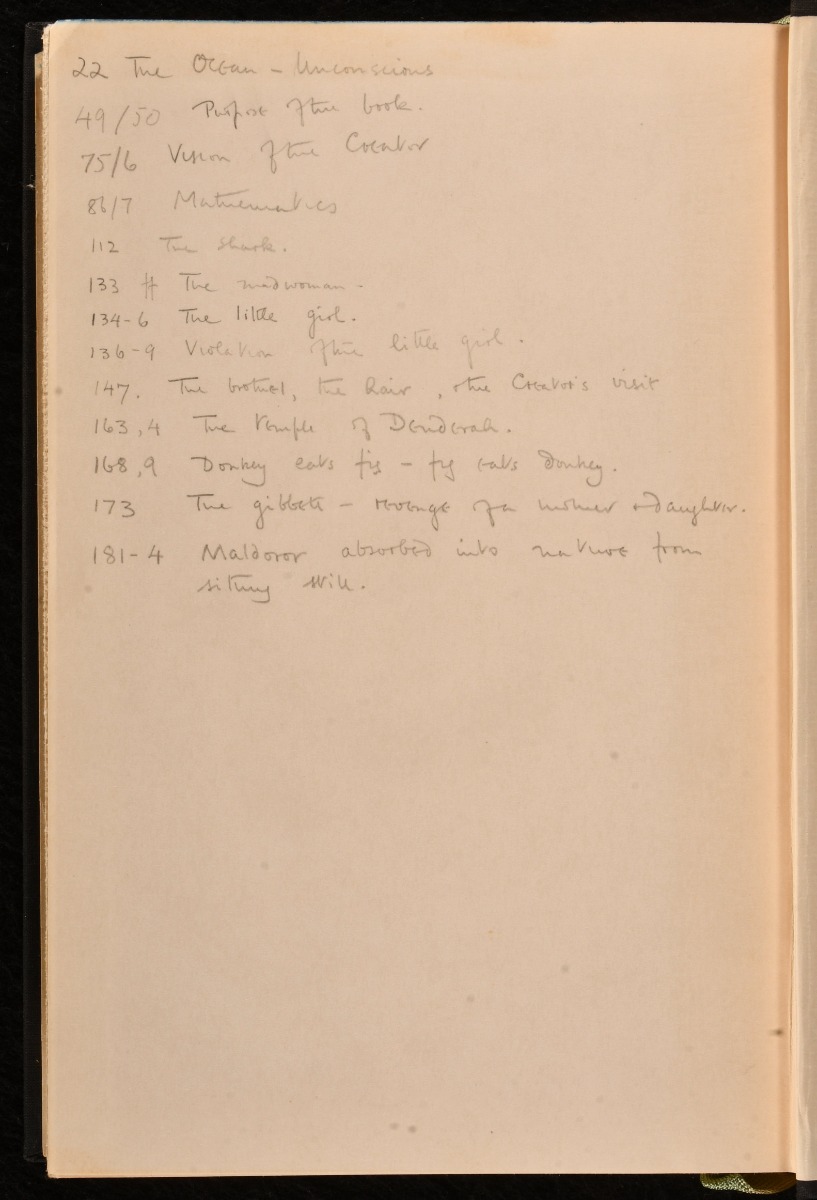 22 The Ocean - Unconscious
49/50 Purpose of the book.
75/6 Vision of the Creator
86/7 Mathematics
112 The shark.
133 ff The madwoman -
134-6 The little girl.
136-9 Violation of the little girl.
147. The brothel, the hair, & the Creator's visit
163,4 The temple of Denderah.
168,9 Donkey eats fig - fig eats donkey.
173 The gibbets - revenge of a mother & daughter.
181-4 Maldoror absorbed into nature from
sitting still.